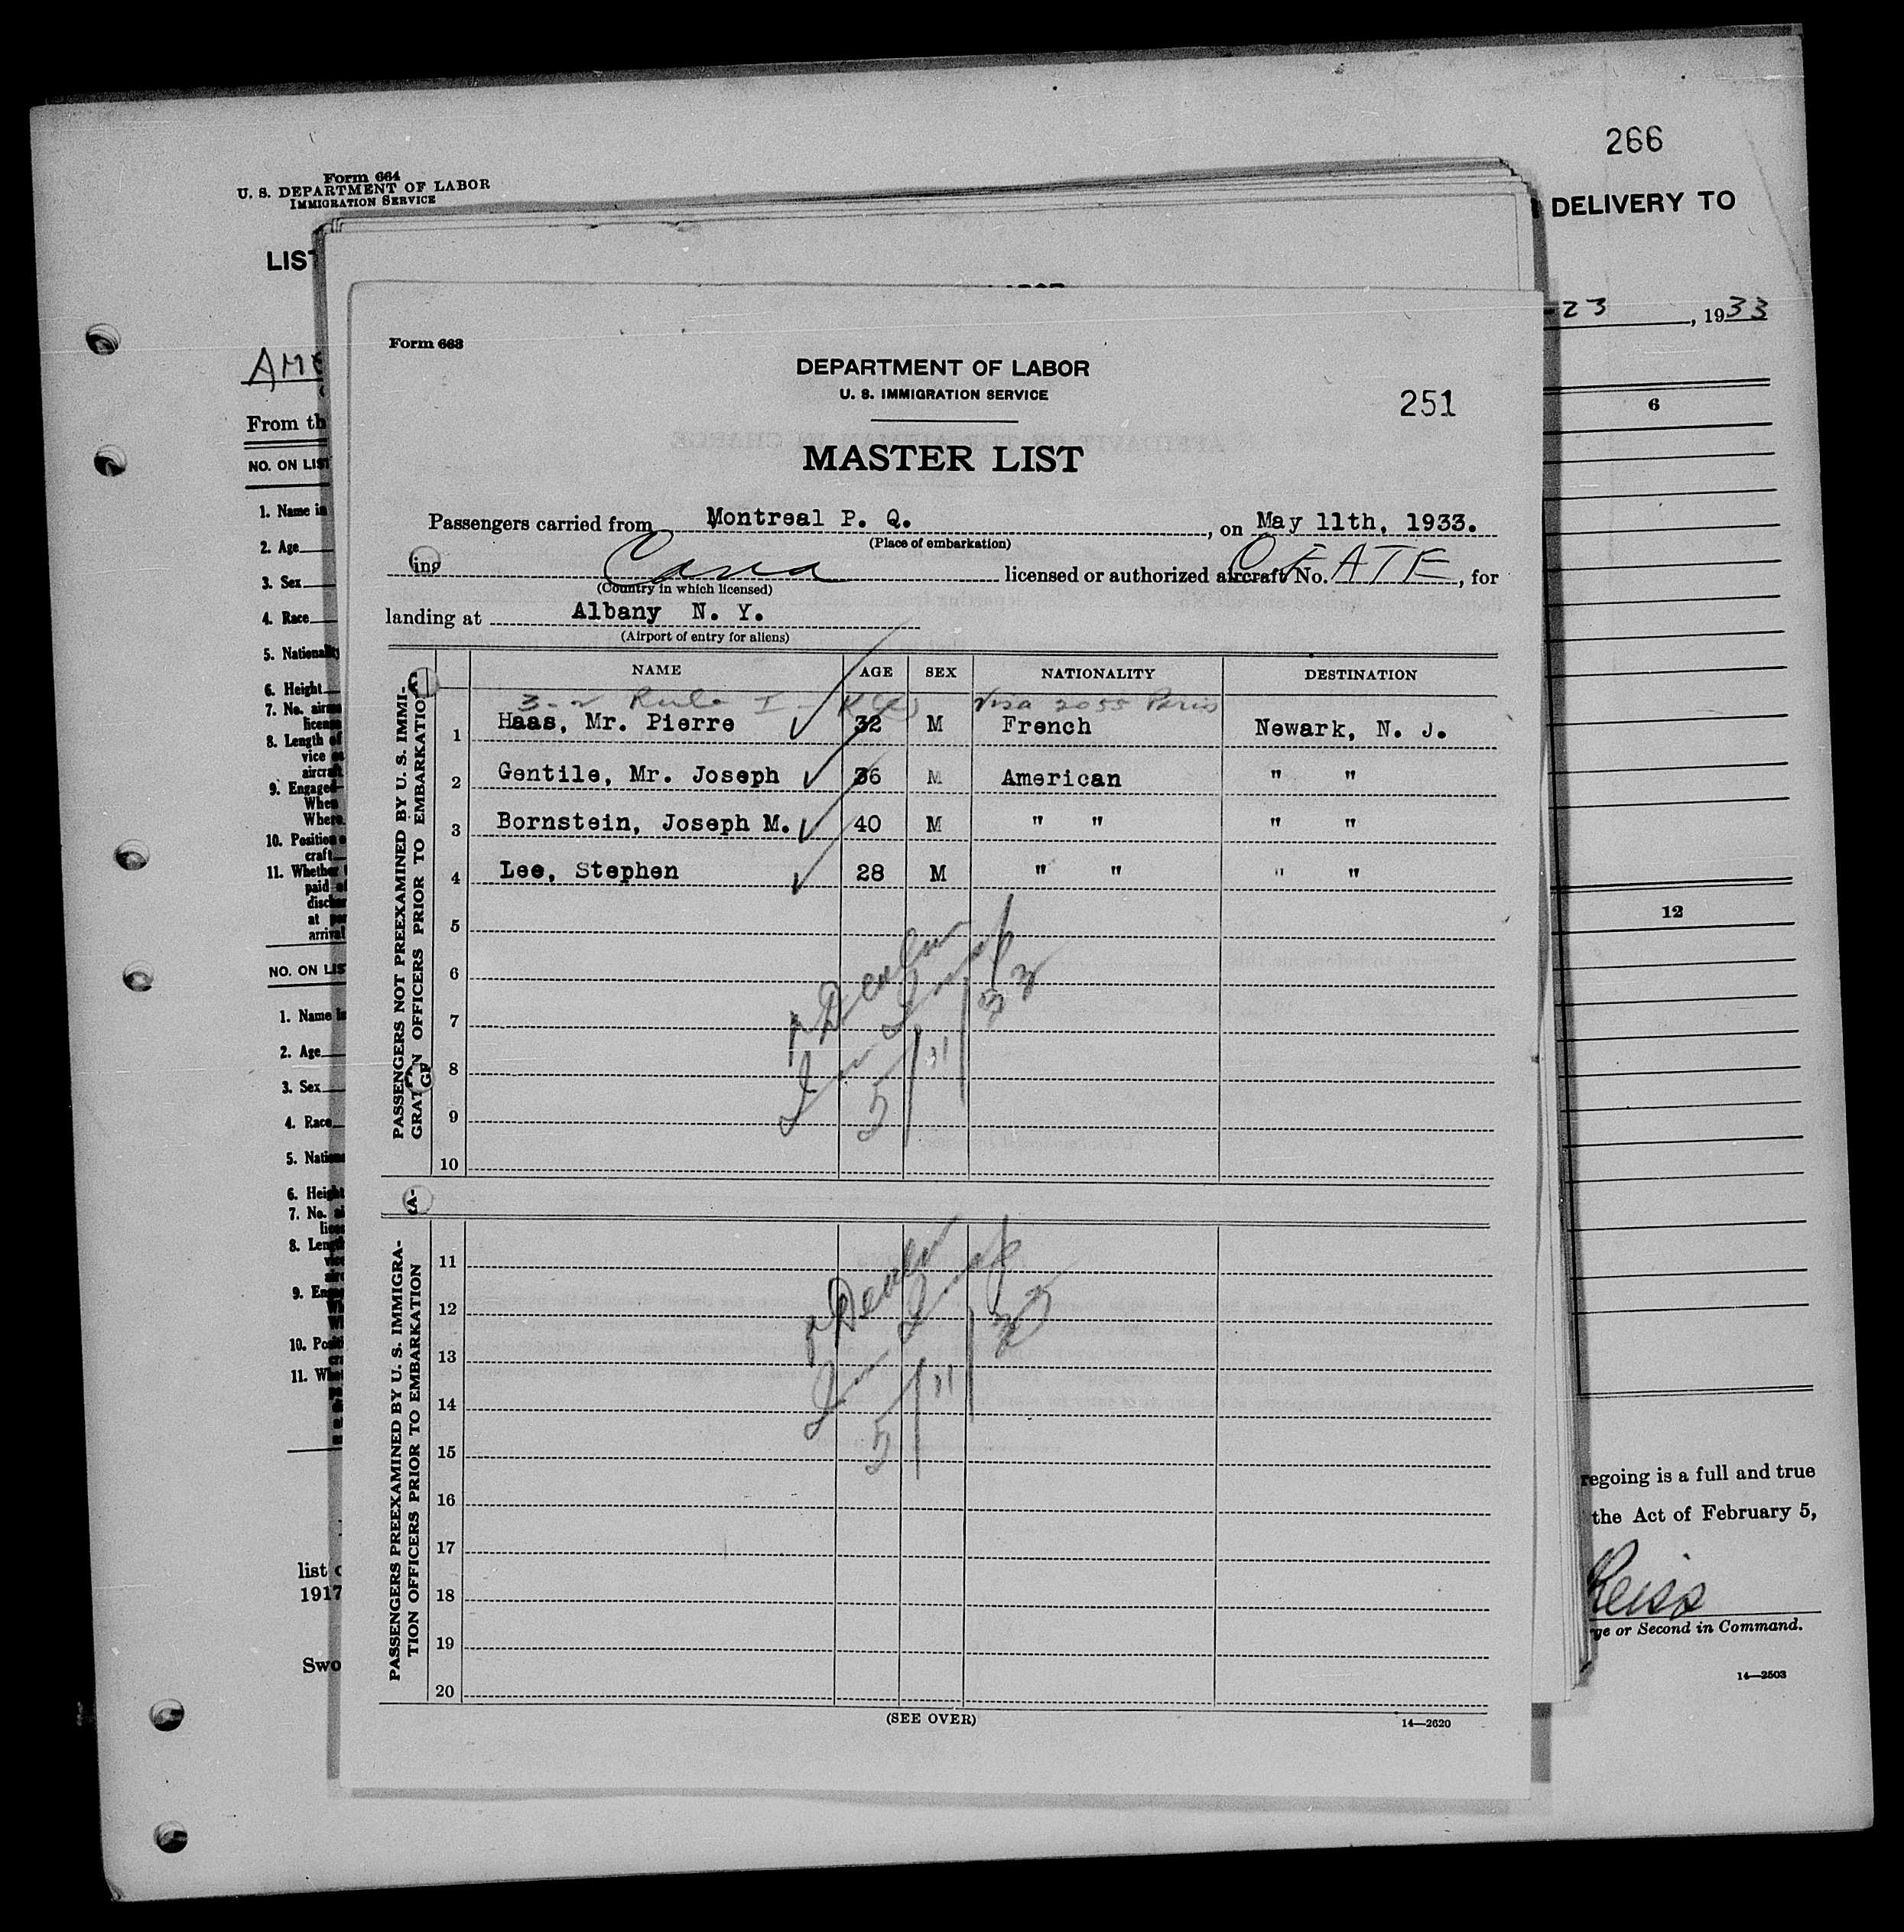 266
Form 664
U. S. DEPARTMENT OF LABOR
IMMIGRATION SERVICE
DELIVERY TO
LIST
23, 1933
AME
From th
6
NO. ON LIST
1. Name in
2. Age
3. Sex
4. Race
5. Nationality
6. Height
7. No. airm
license
8. Length of
vice
aircraft
9. Engaged
When
Where
10. Position
craft
11. Whether
paid
disch
at
arrival
12
NO. ON LIS
1. Name
2. Age
3. Sex
4. Race
5. Natio
6. Heigh
7. No.
8. Leng
9. En
10. Posi
11. Wh
list
1917
Swo
regoing is a full and true
the Act of February 5,
Reiss
ge or Second in Command.
14—2503
Form 663
DEPARTMENT OF LABOR
U. S. IMMIGRATION SERVICE
251
MASTER LIST
Passengers carried from Montreal P. Q., on May 11th, 1933.
(Place of embarkation)
in Cana licensed or authorized aircraft No. CFATE, for
(Country in which licensed)
landing at Albany N. Y.
(Airport of entry for aliens)
NAME AGE SEX NATIONALITY DESTINATION
3-2 Rule I - K(e) Visa 2055 Paris
1 Haas, Mr. Pierre 32 M French Newark, N. J.
2 Gentile, Mr. Joseph 36 M American " "
3 Bornstein, Joseph M. 40 M " " " "
4 Lee, Stephen 28 M " " " "
5
6
7
8
9
10
PASSENGERS NOT PREEXAMINED BY U. S. IMMI-
GRATION OFFICERS PRIOR TO EMBARKATION
5/11/33
11
12
13
14
15
16
17
18
19
20
PASSENGERS PREEXAMINED BY U. S. IMMIGRA-
TION OFFICERS PRIOR TO EMBARKATION
5/11/33
(SEE OVER)
14—2620